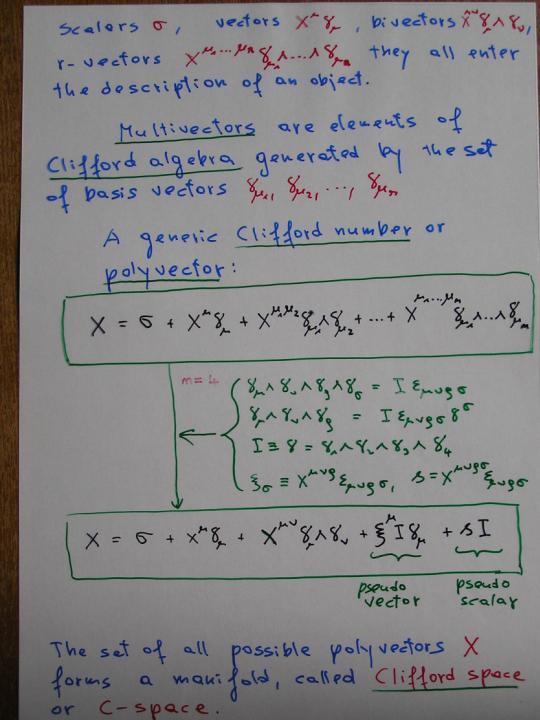 scalars σ, vectors X^μ γ_μ, bivectors X^μν γ_μ∧γ_ν,
r-vectors X^μ₁...μₙ γ_μ₁∧...∧γ_μₙ they all enter
the description of an object.
Multivectors are elements of
Clifford algebra generated by the set
of basis vectors γ_μ₁, γ_μ₂, ..., γ_μₙ
A generic Clifford number or
polyvector:
X = σ + X^μ γ_μ + X^μ₁μ₂ γ_μ₁∧γ_μ₂ + ... + X^μ₁...μₙ γ_μ₁∧...∧γ_μₙ
n = 4
γ_μ∧γ_ν∧γ_ρ∧γ_σ = I ε_μνρσ
γ_μ∧γ_ν∧γ_ρ = I ε_μνρσ γ^σ
I ≡ γ = γ₁∧γ₂∧γ₃∧γ₄
ξ_σ ≡ X^μνρ ε_μνρσ, s = X^μνρσ ε_μνρσ
X = σ + X^μ γ_μ + X^μν γ_μ∧γ_ν + ξ^μ I γ_μ + s I
pseudo vector
pseudo scalar
The set of all possible polyvectors X
forms a manifold, called Clifford space
or C-space.